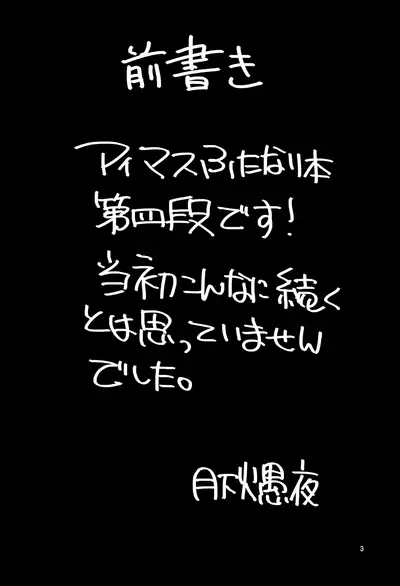 前書き
アイマスふたなり本
第四段です!
当初こんなに続く
とは思っていません
でした。
月下愚夜
3